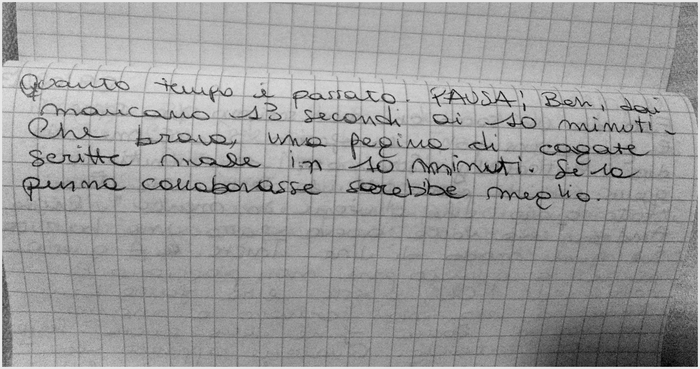 Quanto tempo è passato. PAUSA! Beh, dai
mancano 13 secondi ai 10 minuti.
Che brava, una pagina di cagate
scritte male in 10 minuti. Se la
penna collaborasse sarebbe meglio.